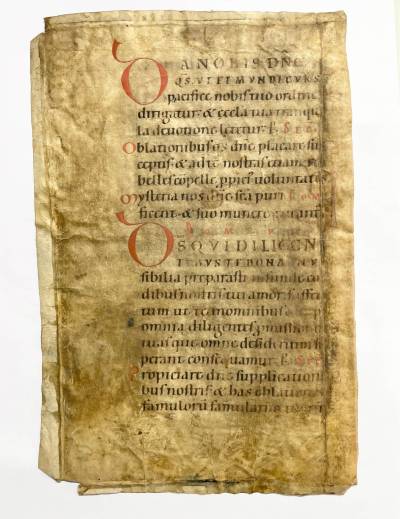 DA NOBIS DNE
QS UT ET MUNDI CURS
pacifice nobis tuo ordine
dirigatur & eccla tua tranqui
la deuotione letetur P SEC
Oblationibus qs dne placare su
ceptis & ad te nostras etiam re
belles cōpelle ppiti uoluntates
Mysteria nos dne sca puri COM
ficent & suo munere
DOM
DS QUI DILIGEN
TIBUS TE BONA INUI
sibilia preparasti infunde cor
dibus nostris tui amoris affec
tum ut te in omnibus & sup
omnia diligentes pmissiones
tuas que omne desiderium su
perant consequamur P SEC
Propiciare dne supplication
bus nostris & has oblationes
famulorū famularūq